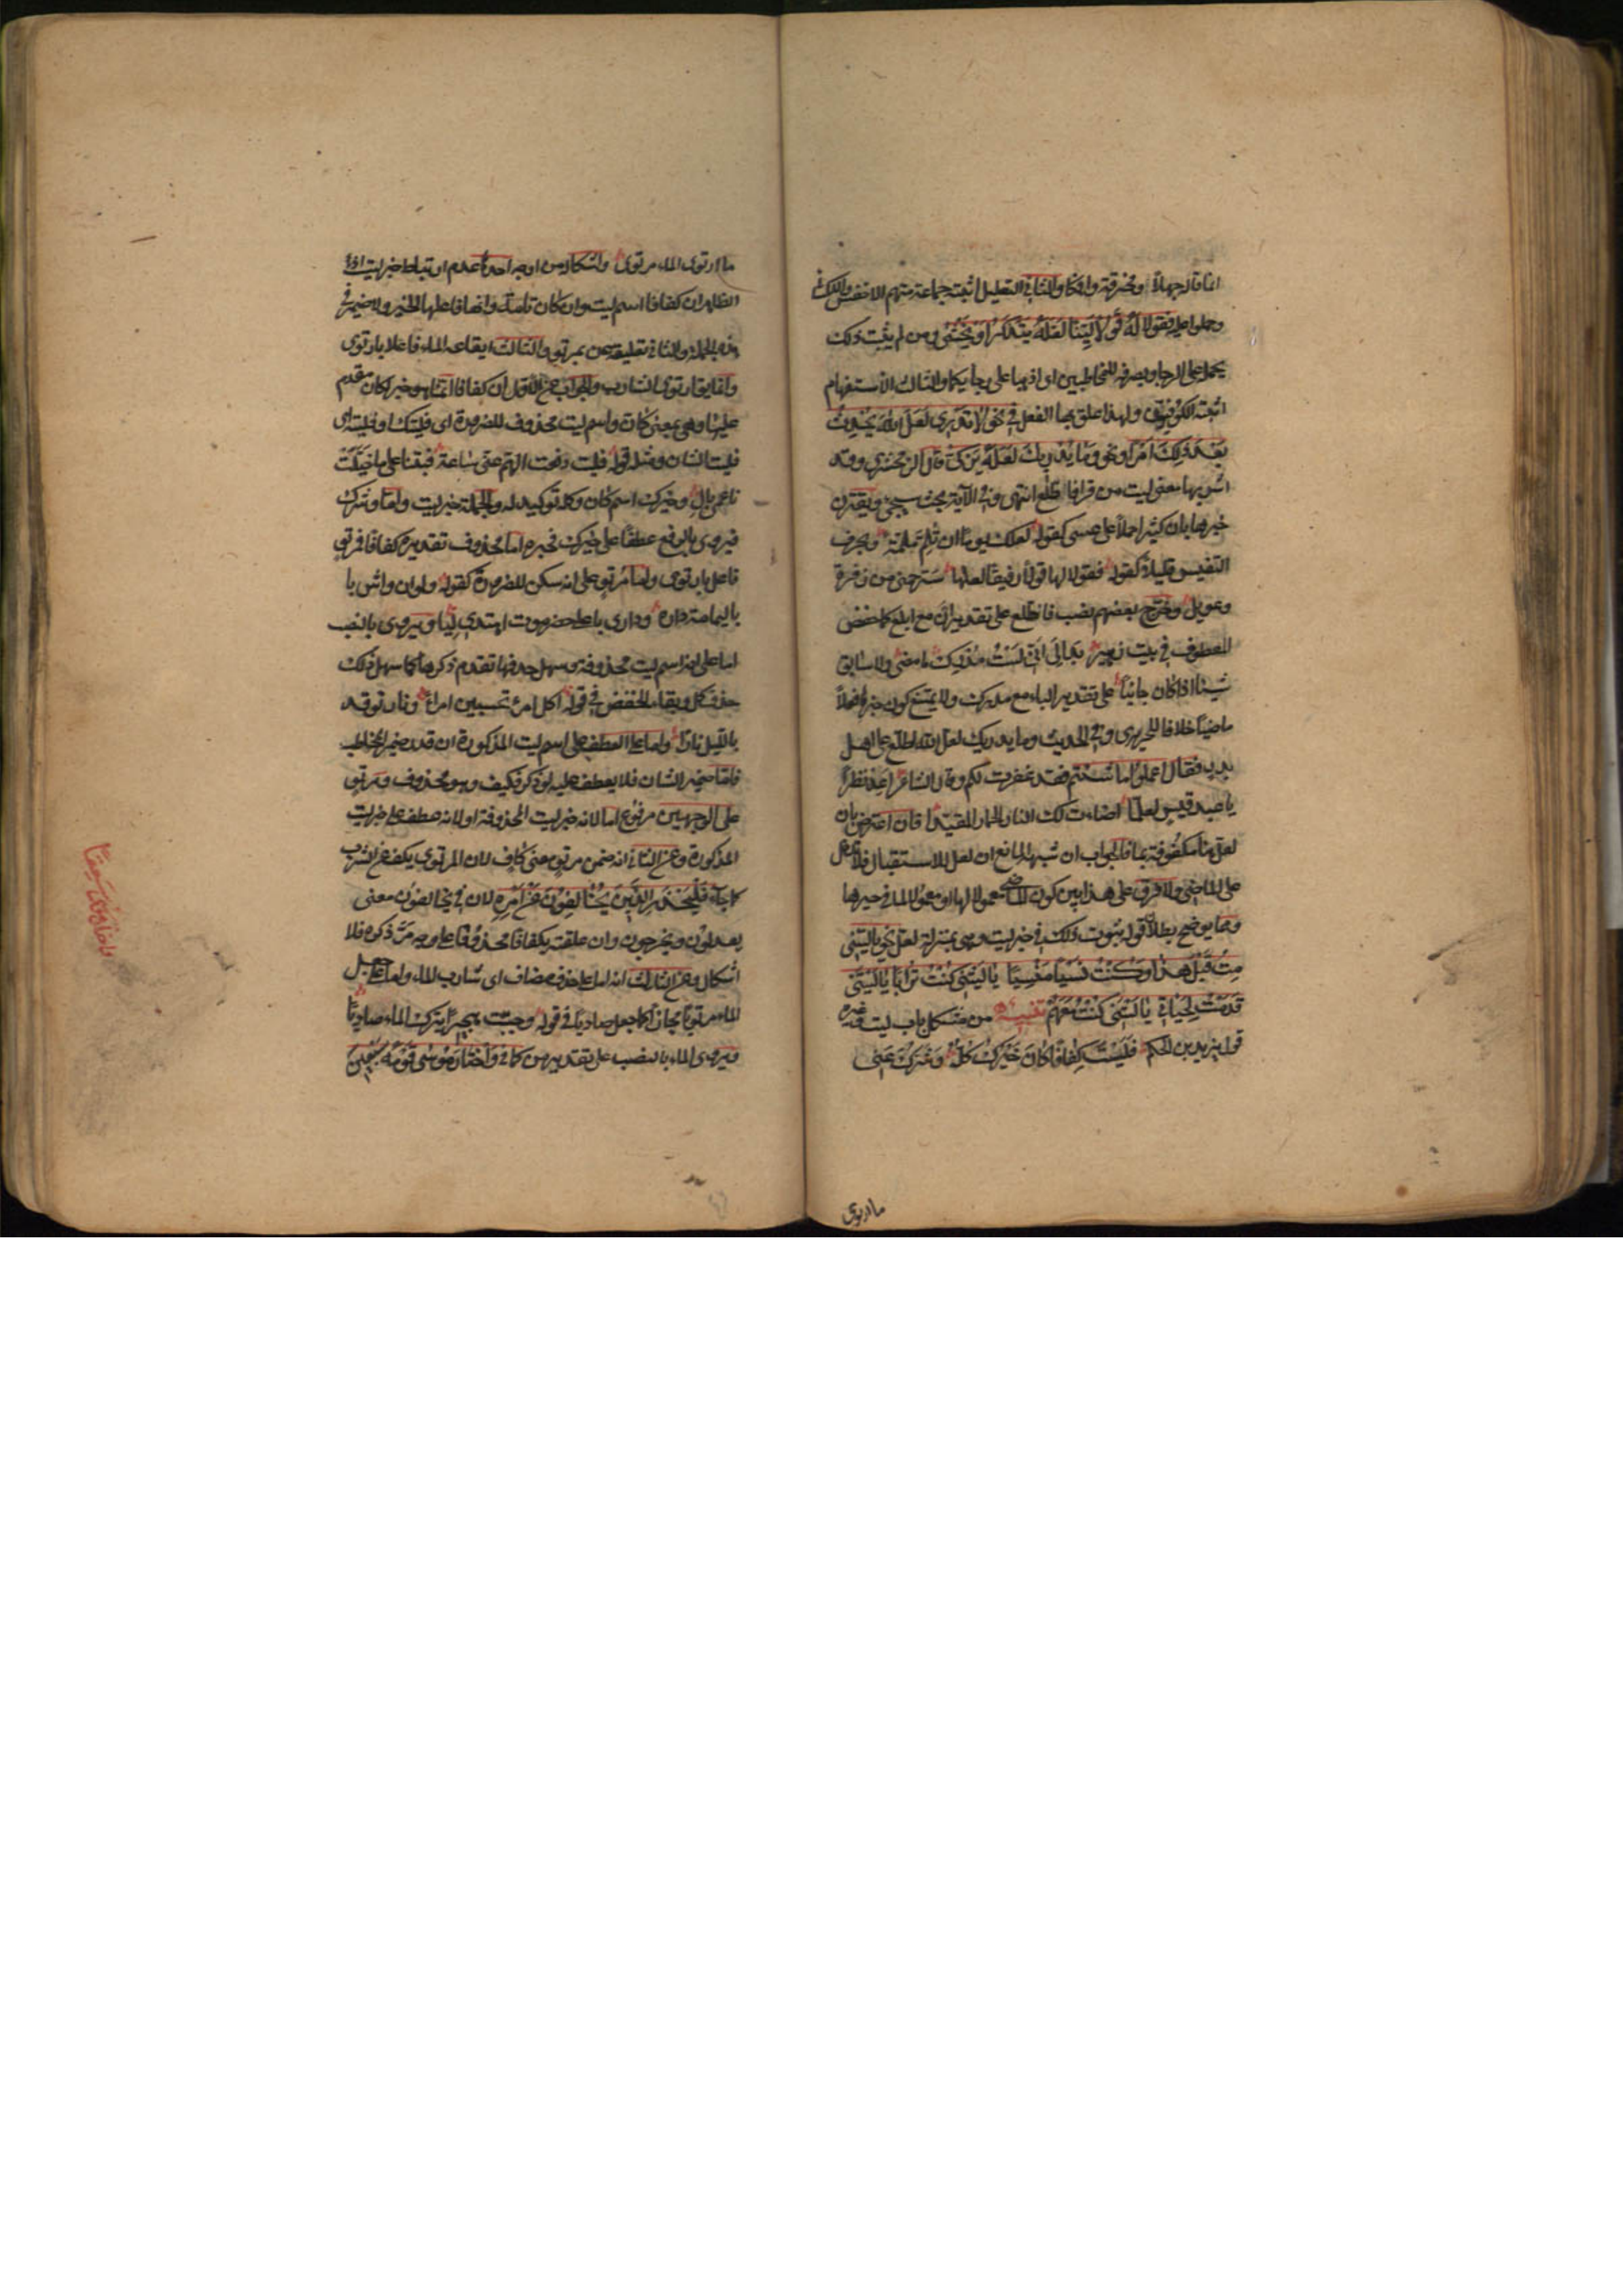 انما قاله جهلاً او مخرقة وافكا والثاني التعليل اثبته جماعة منهم الاخفش والكسائي
وحملوا عليه فقولا له قولا لينا لعله يتذكر او يخشى ومن لم يثبت ذلك
يحمله على الرجاء ويصرفه للمخاطبين اى اذهبا على رجائكما والثالث الاستفهام
اثبته الكوفيون ولهذا علق بها الفعل في نحو لا تدرى لعل الله يحدث
بعد ذلك امرا ونحو وما يدريك لعله يزكى قال الزمخشري وقد
اشربها معنى ليت من قرا فاطلع انتهى وفي الآية بحث سيجئ ويقترن
خبرها بان كثيرا حملاً على عسى كقوله لعلك يوما ان تلم ملمة وبحرف
التنفيس قليلا كقوله فقولا لها قولا رفيقا لعلها سترحمني من زفرة
وعويل وخرّج بعضهم نصب فاطلع على تقدير ان مع ابلغ كما خفض
المعطوف في بيت زهير بدا لى انى لست مدرك ما مضى ولا سابق
شيئا اذا كان جائيا على تقدير الباء مع مدرك ولا يمتنع كون خبرها فعلاً
ماضيا خلافا للحريرى وفي الحديث وما يدريك لعل الله اطلع على اهل
بدر فقال اعملوا ما شئتم فقد غفرت لكم وقال الشاعر اعد نظراً
يا عبد قيس لعلما اضاءت لك النار الحمار المقيدا فان اعترض بان
لعل هنا مكفوفة بما فالجواب ان شبهة المانع ان لعل للاستقبال فلا تدخل
على الماضى ولا فرق على هذا بين كون الماضى معمولا لها او معمولا لما في حيزها
ومما يوضح بطلان قوله ثبوت ذلك في خبر ليت وهى بمنزلة لعل نحو يا ليتنى
مت قبل هذا وكنت نسيا منسيا يا ليتنى كنت ترابا يا ليتنى
قدمت لحياتي يا ليتنى كنت معهم تنبيه من مشكل باب ليت وغيره
قول يزيد بن الحكم فليت كفافا كان خيرك كله وشرك عنى
ما ارتوى
ما ارتوى الماء مرتوى واشكاله من اوجه احدها عدم ارتباط خبر ليت اذ
الظاهر ان كفافا اسم ليت وان كان تامة وانها فاعلها الخبر ولا ضمير في
هذه الجملة والثاني تعليقه عن بمرتو والثالث ايقاعه الماء فاعلا بارتوى
وانما يقال ارتوى الشارب والجواب عن الاول ان كفافا انما هو خبر لكان مقدم
عليها وهى بمعنى كاف واسم ليت محذوف للضرورة اى فليتك او فليته اى
فليت الشان ومثله قوله فليت دفعت الهم عنى ساعة فبتنا على ما خيلت
ناعمى بال وخيرك اسم كان وكله توكيد له والجملة خبر ليت واما وشرك
فيروى بالرفع عطفا على خيرك فخبره اما محذوف تقديره كفافا فمرتو
فاعل بارتوى واما مرتو على انه سكن للضرورة كقوله ولو ان واش با
باليمامة داره وداري باعلى حضرموت اهتدى ليا ويروى بالنصب
اما على انه اسم ليت محذوفة وسهل حذفها تقدم ذكرها كما سهل ذلك
حذف كل وبقاء الخفض في قوله اكل امرئ تحسبين امرأ ونار توقد
بالليل نارا واما على العطف على اسم ليت المذكورة ان قدر ضمير المخاطب
فاما ضمير الشان فلا يعطف عليه لو ذكر فكيف وهو محذوف ومرتو
على الوجهين مرفوع اما لانه خبر ليت المحذوفة او لانه عطف على خبر ليت
المذكورة وعن الثاني انه ضمن مرتو معنى كاف لان المرتوى يكف عن الشرب
كما جاء فليحذر الذين يخالفون عن امره لان في يخالفون معنى
يعدلون ويخرجون وان علقته بكفافا محذوفا على وجه مر ذكره فلا
اشكال وعن الثالث انه اما على حذف مضاف اى شارب الماء واما على جعل
الماء مرتويا مجازا كما جعل صاديا في قوله وجبت هجيرا يترك الماء صاديا
ويروى الماء بالنصب على تقدير من كما في واختار موسى قومه سبعين